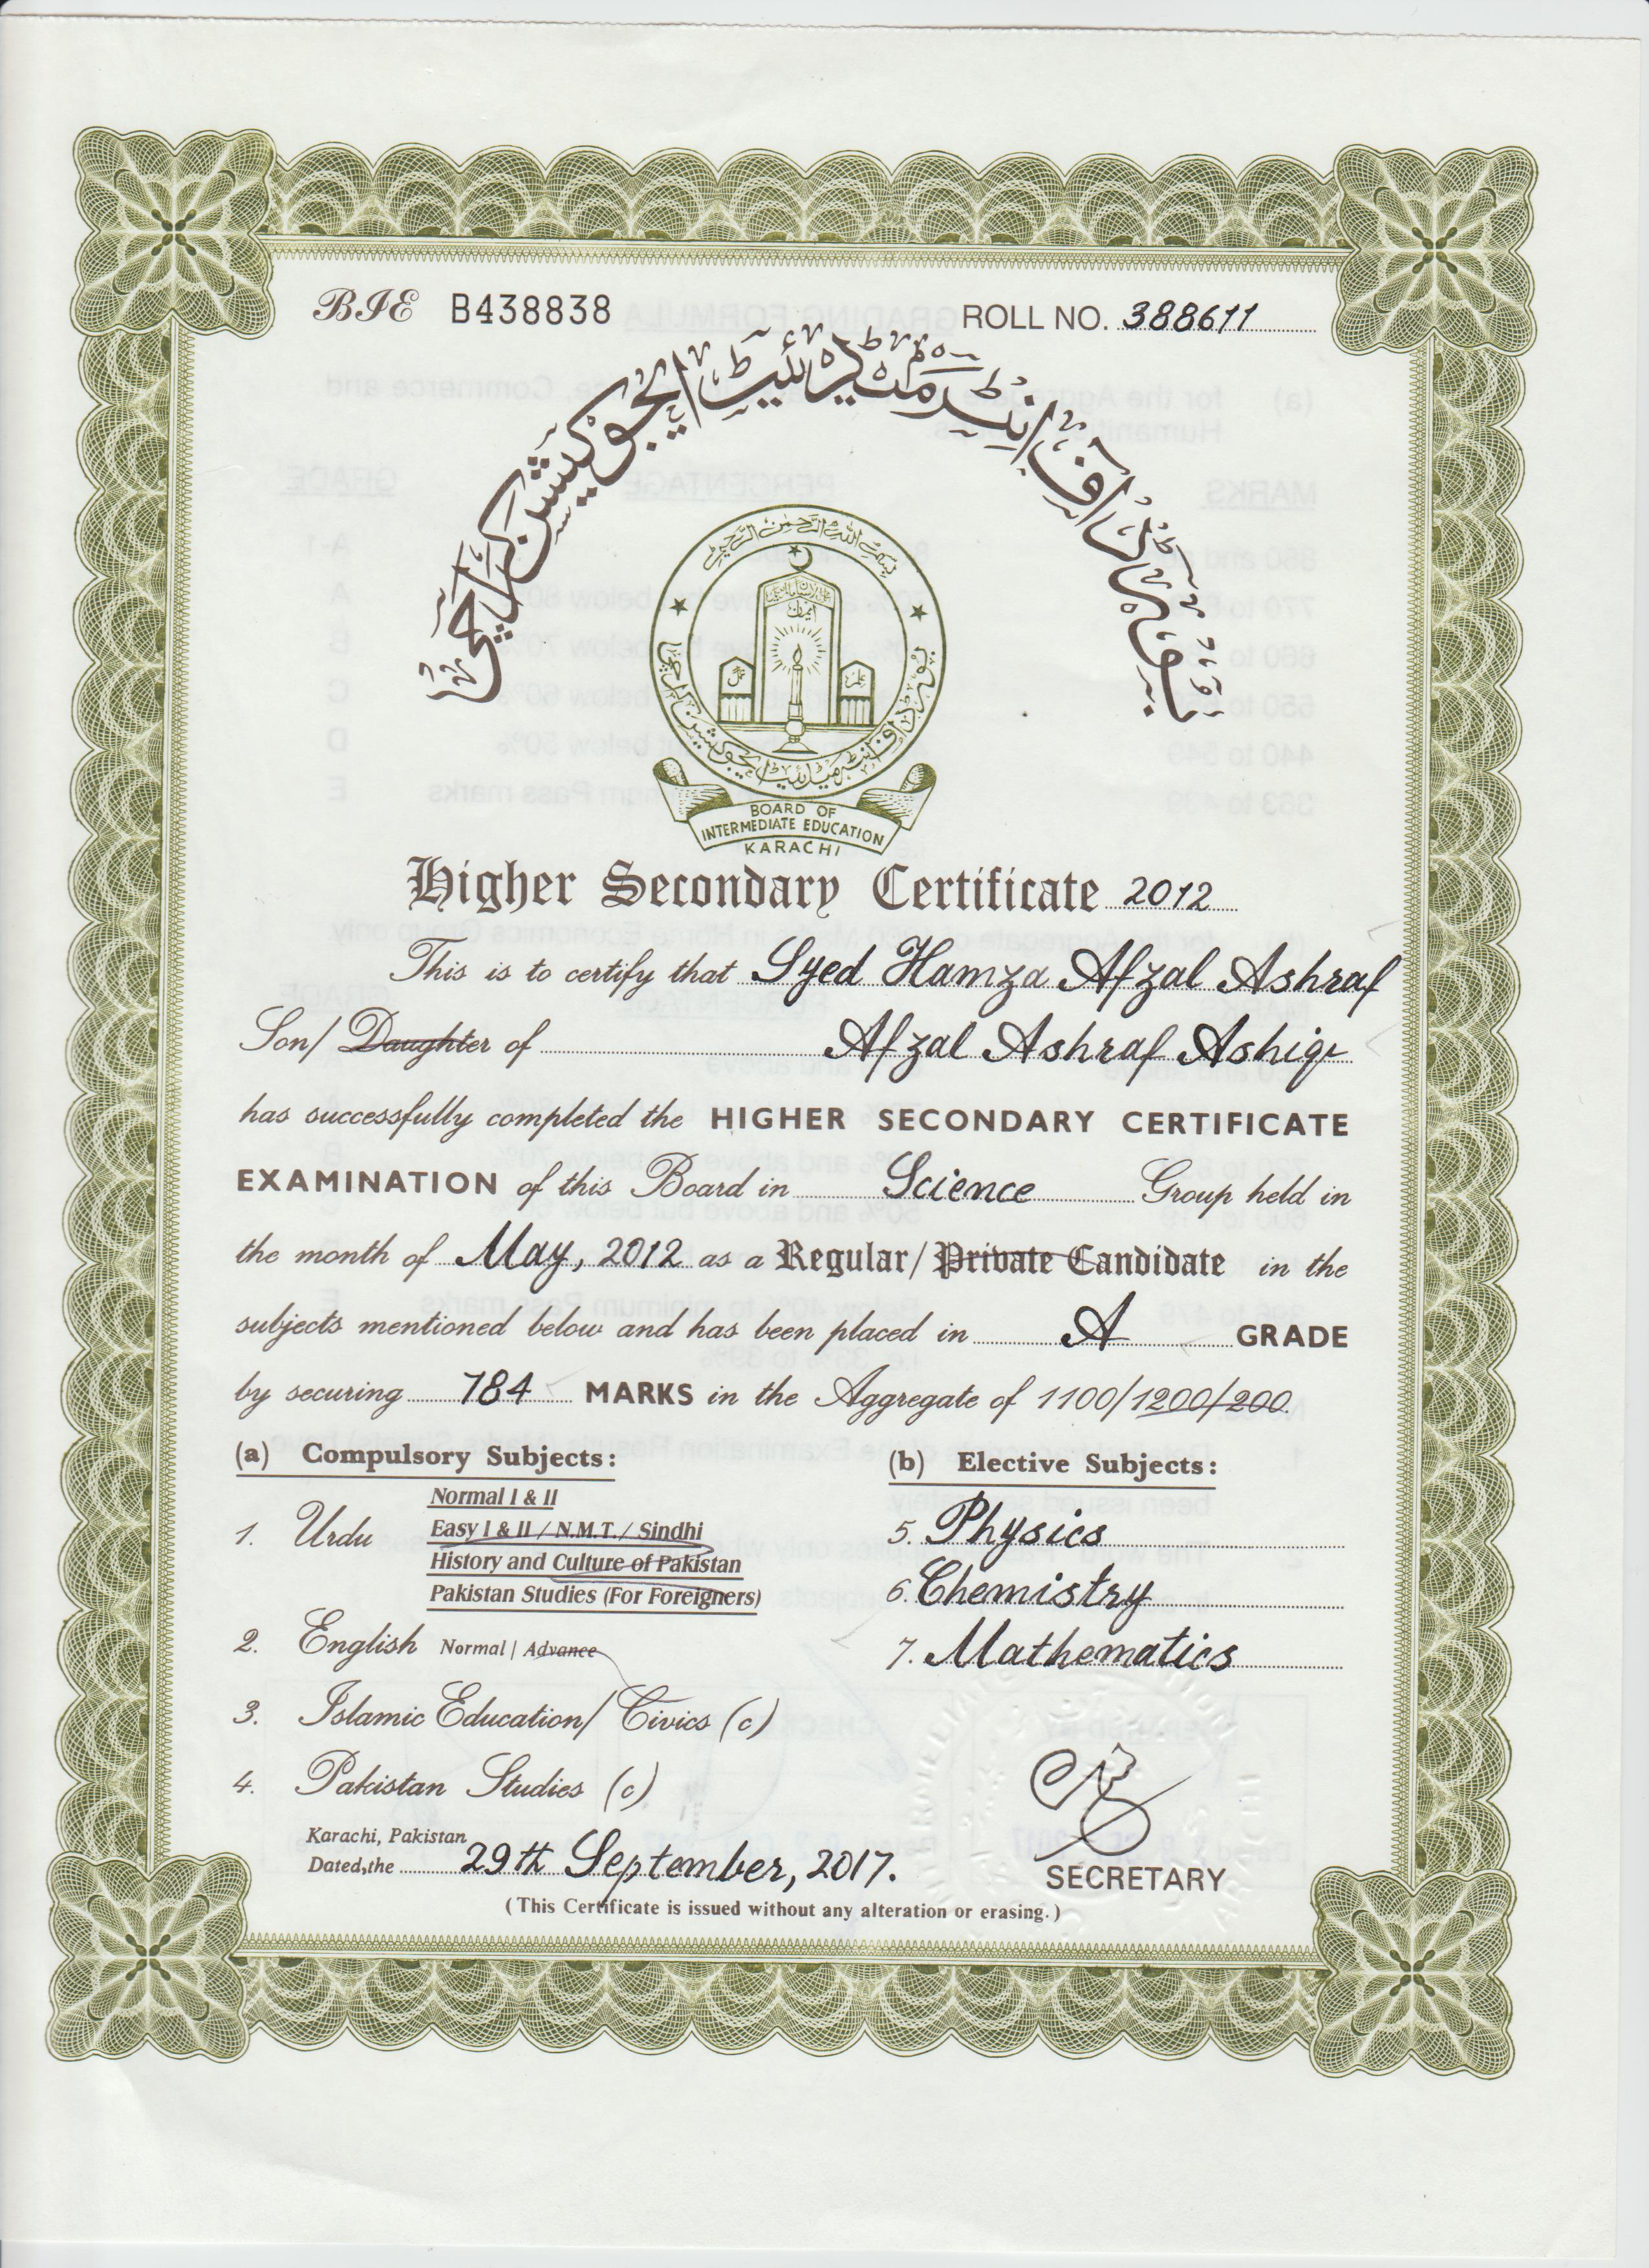 BIE B438838 ROLL NO. 388611
بورڈ آف انٹرمیڈیئیٹ ایجوکیشن کراچی
BOARD OF
INTERMEDIATE EDUCATION
KARACHI
Higher Secondary Certificate 2012
This is to certify that Syed Hamza Afzal Ashraf
Son/ Daughter of Afzal Ashraf Ashiqe
has successfully completed the HIGHER SECONDARY CERTIFICATE
EXAMINATION of this Board in Science Group held in
the month of May, 2012 as a Regular/ Private Candidate in the
subjects mentioned below and has been placed in A GRADE
by securing 784 MARKS in the Aggregate of 1100/1200/200.
(a) Compulsory Subjects: (b) Elective Subjects:
Normal I & II
1. Urdu Easy I & II / N.M.T. / Sindhi 5. Physics
History and Culture of Pakistan
Pakistan Studies (For Foreigners) 6. Chemistry
2. English Normal | Advance 7. Mathematics
3. Islamic Education/ Civics (c)
4. Pakistan Studies (c)
Karachi, Pakistan
Dated, the 29th September, 2017.
SECRETARY
(This Certificate is issued without any alteration or erasing.)